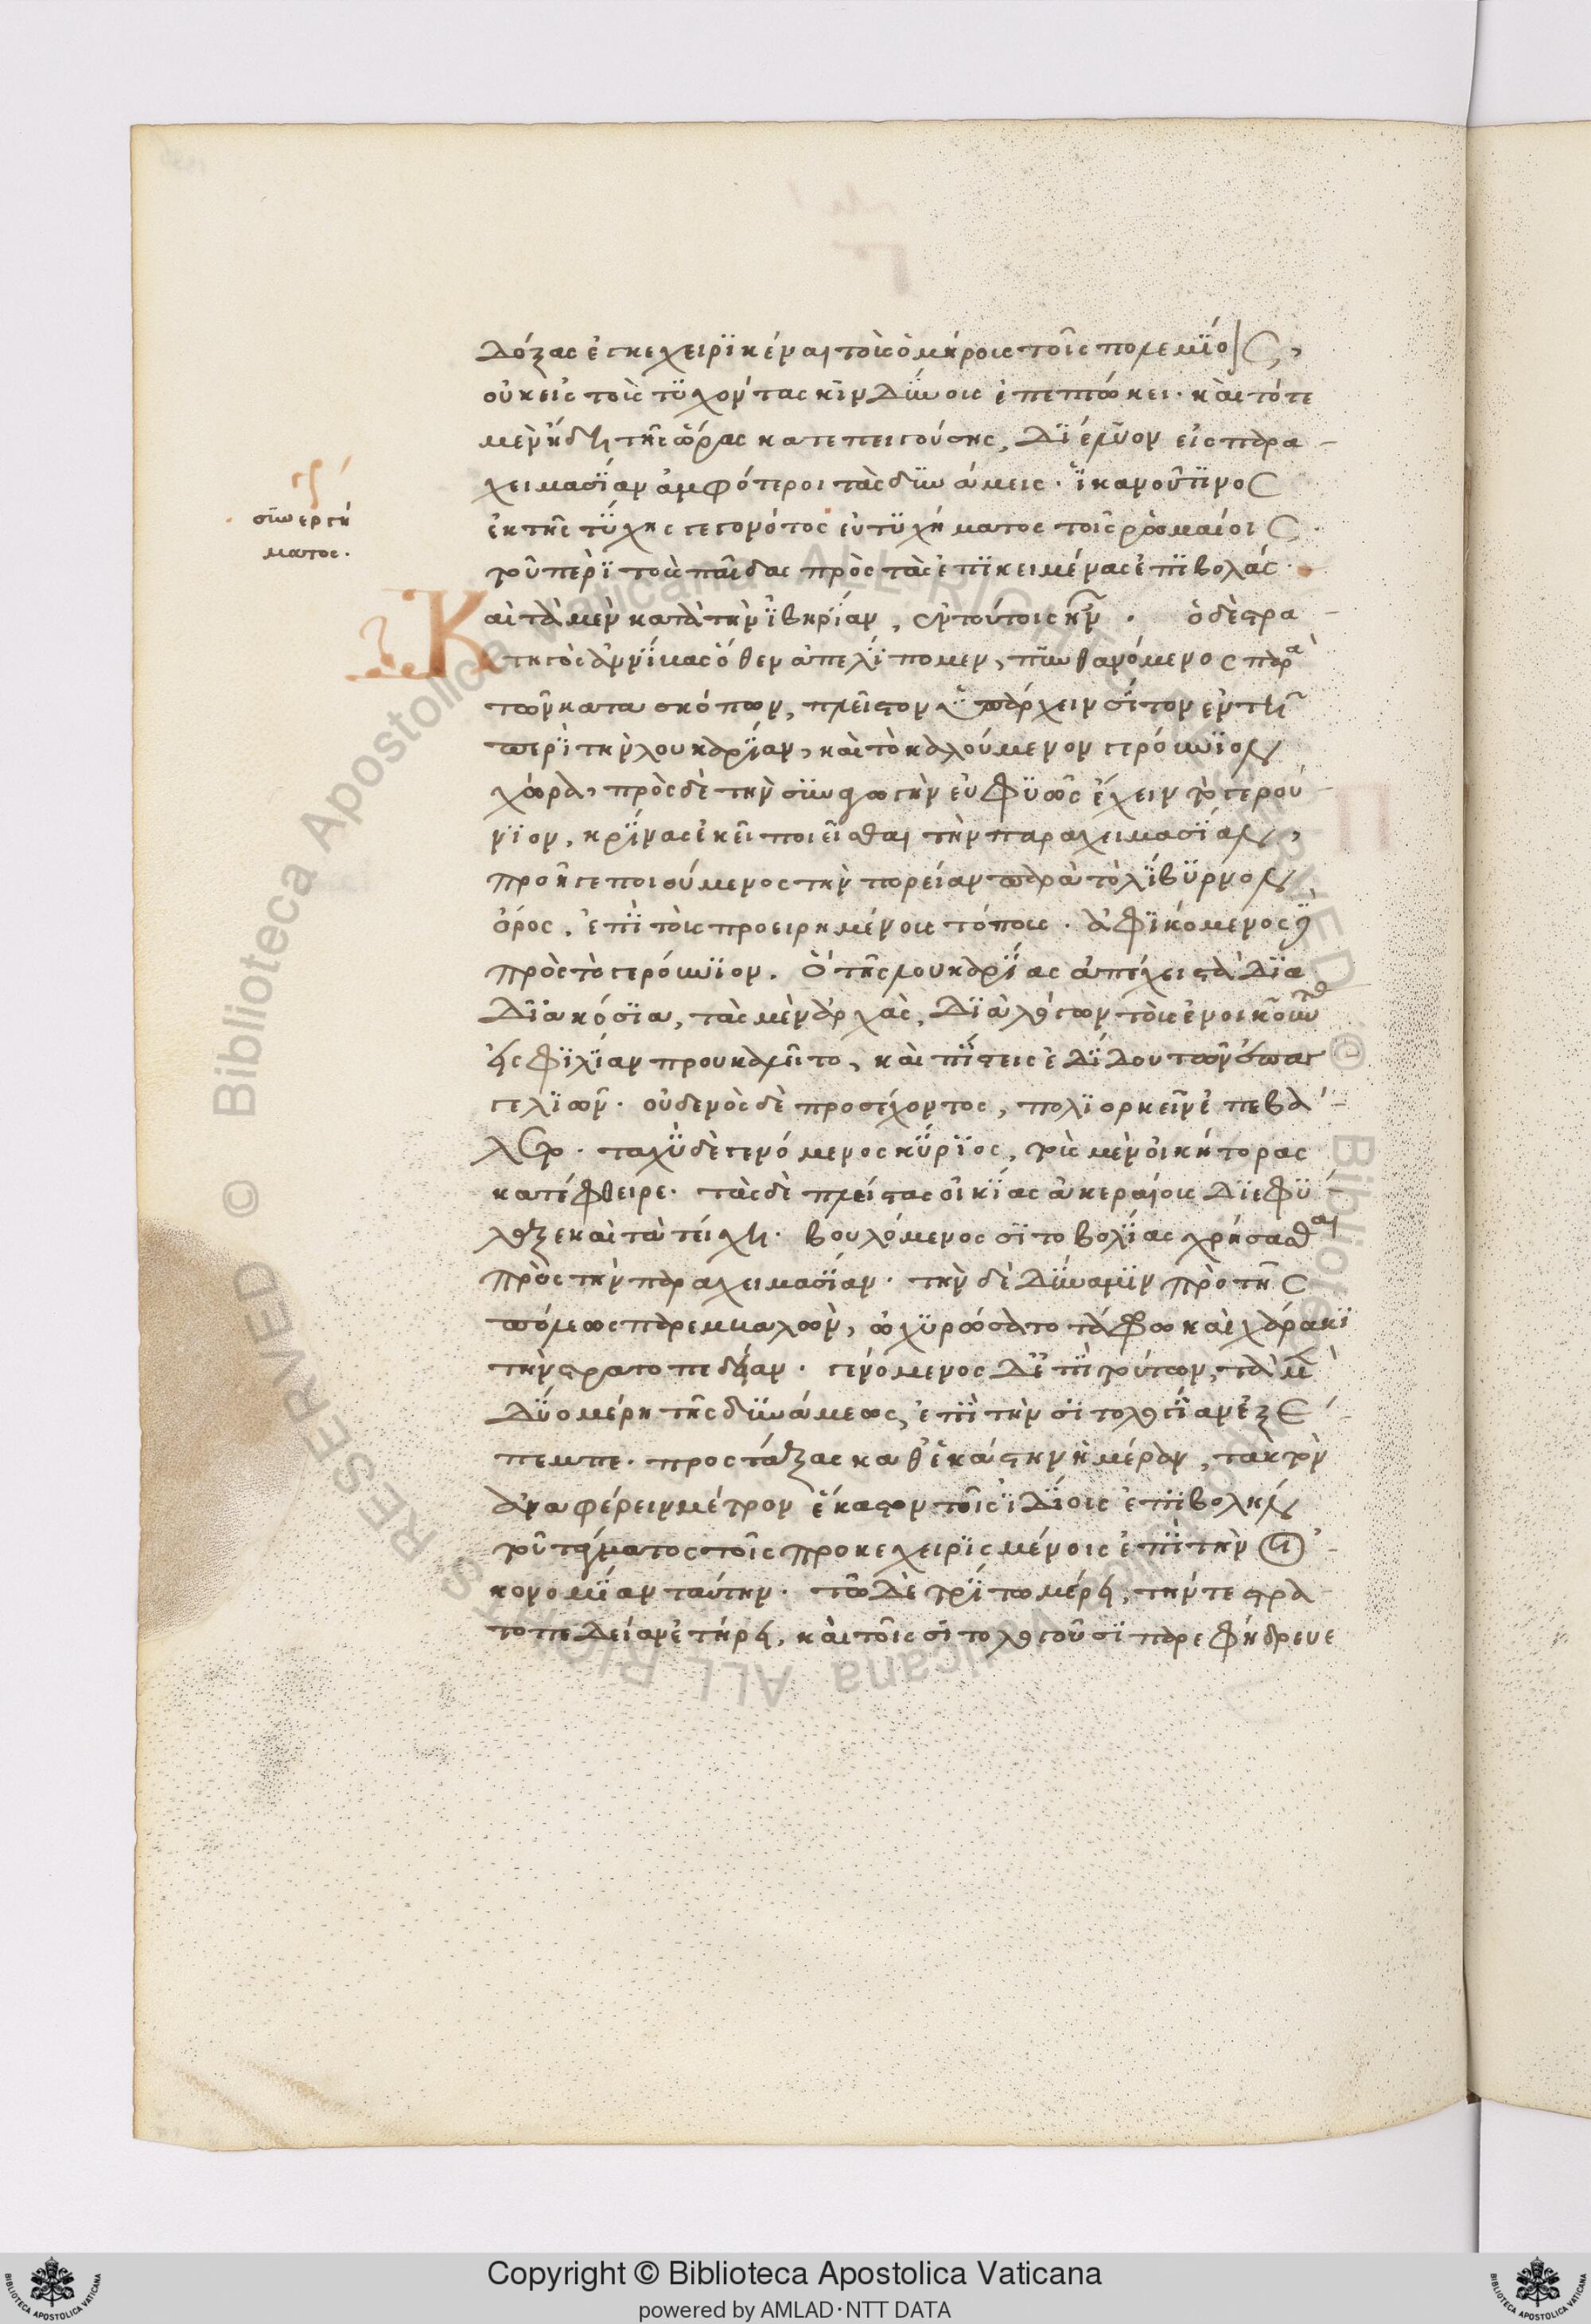 δόξας ἐγκεχειρικέναι τοὺς ὁμήρους τοῖς πολεμίοις,
οὐκ εἰς τοὺς τυχόντας κινδύνους ἐπεπτώκει· καὶ τότε
μὲν ἤδη τῆς ὥρας κατεπειγούσης, διέλυον εἰς παρα
χειμασίαν ἀμφότεροι τὰς δυνάμεις· ἱκανοῦ τινος
ἐκ τῆς τύχης γεγονότος εὐτυχήματος τοῖς ῥωμαίοις
γρ
συνεργή
ματος·
τοῦ περὶ τοὺς παῖδας πρὸς τὰς ἐπικειμένας ἐπιβολάς·
Καὶ τὰ μὲν κατὰ τὴν ἰβηρίαν, ἐν τούτοις ἦν· ὁ δὲ στρα
τηγὸς ἀννίβας ὅθεν ἀπελίπομεν, πυνθανόμενος παρὰ
τῶν κατασκόπων, πλεῖστον ὑπάρχειν σῖτον ἐν τῇ
περὶ τὴν λουκαρίαν, καὶ τὸ καλούμενον γερούνιον
χώρα, πρὸς δὲ τὴν συναγωγὴν εὐφυῶς ἔχειν τὸ γερού
νιον, κρίνας ἐκεῖ ποιεῖσθαι τὴν παραχειμασίαν,
προῆγε ποιούμενος τὴν πορείαν παρὰ τὸ λίβυρνον
ὄρος, ἐπὶ τοὺς προειρημένους τόπους· ἀφικόμενος δὲ
πρὸς τὸ γερούνιον, ὃ τῆς λουκαρίας ἀπέχει στάδια
διακόσια, τὰς μὲν ἀρχὰς, διὰ λόγων τοὺς ἐνοικοῦντας
εἰς φιλίαν προυκαλεῖτο, καὶ πίστεις ἐδίδου τῶν ἐπαγ
γελιῶν· οὐδενὸς δὲ προσέχοντος, πολιορκεῖν ἐπεβά
λετο· ταχὺ δὲ γενόμενος κύριος, τοὺς μὲν οἰκήτορας
κατέφθειρε· τὰς δὲ πλείστας οἰκίας ἀκεραίους διεφύ
λαξε καὶ τὰ τείχη· βουλόμενος σιτοβολίοις χρήσασθαι
πρὸς τὴν παραχειμασίαν· τὴν δὲ δύναμιν πρὸ τῆς
πόλεως παρεμβαλὼν, ὠχυρώσατο τάφρω καὶ χάρακι
τὴν στρατοπεδείαν· γενόμενος δ' ἐπὶ τούτων, τὰ μὲν
δύο μέρη τῆς δυνάμεως, ἐπὶ τὴν σιτολογίαν ἐξέ
πεμπε· προστάξας καθ' ἑκάστην ἡμέραν, τακτὸν
ἀναφέρειν μέτρον ἕκαστον τοῖς ἰδίοις ἐπιβολὴν
τοῦ τάγματος τοῖς προκεχειρισμένοις ἐπὶ τὴν οἰ
κονομίαν ταύτην· τῶ δὲ τρίτω μέρει, τήν τε στρα
τοπεδείαν ἐτήρει, καὶ τοῖς σιτολογοῦσι παρεφήδρευε